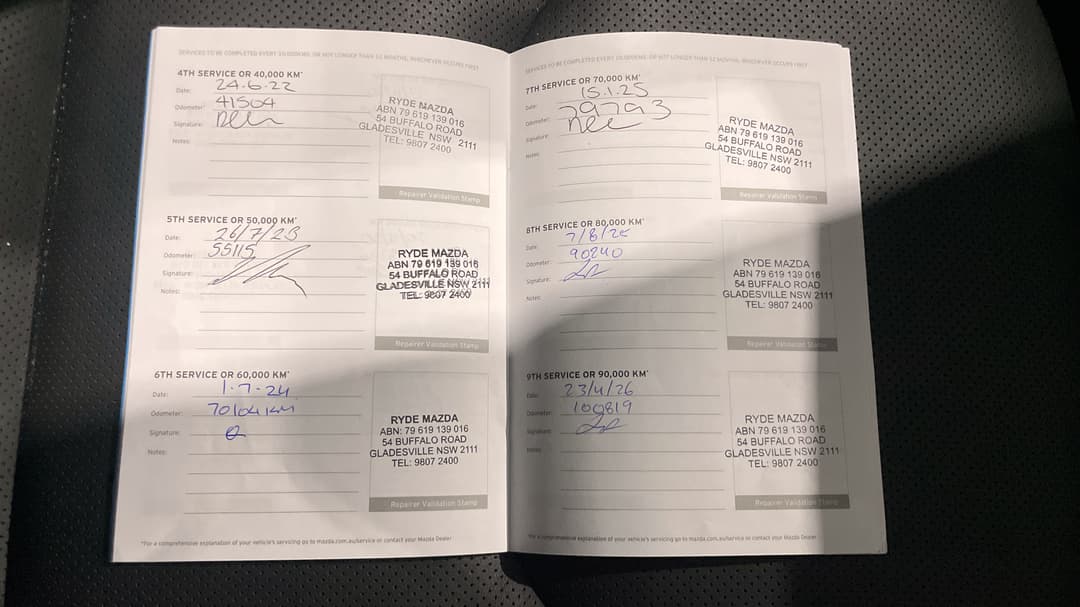 SERVICES TO BE COMPLETED EVERY 10,000KMS, OR NOT LONGER THAN 12 MONTHS, WHICHEVER OCCURS FIRST
4TH SERVICE OR 40,000 KM*
Date: 24.6.22
Odometer: 41504
Signature:
Notes:
RYDE MAZDA
ABN 79 619 139 016
54 BUFFALO ROAD
GLADESVILLE NSW 2111
TEL: 9807 2400
Repairer Validation Stamp
5TH SERVICE OR 50,000 KM*
Date: 26/7/23
Odometer: 55115
Signature:
Notes:
RYDE MAZDA
ABN 79 619 139 016
54 BUFFALO ROAD
GLADESVILLE NSW 2111
TEL: 9807 2400
Repairer Validation Stamp
6TH SERVICE OR 60,000 KM*
Date: 1-7-24
Odometer: 70104KM
Signature:
Notes:
RYDE MAZDA
ABN: 79 619 139 016
54 BUFFALO ROAD
GLADESVILLE NSW 2111
TEL: 9807 2400
Repairer Validation Stamp
*For a comprehensive explanation of your vehicle's servicing go to mazda.com.au/service or contact your Mazda Dealer
SERVICES TO BE COMPLETED EVERY 10,000KMS, OR NOT LONGER THAN 12 MONTHS, WHICHEVER OCCURS FIRST
7TH SERVICE OR 70,000 KM*
Date: 15.1.25
Odometer: 79793
Signature:
Notes:
RYDE MAZDA
ABN 79 619 139 016
54 BUFFALO ROAD
GLADESVILLE NSW 2111
TEL: 9807 2400
Repairer Validation Stamp
8TH SERVICE OR 80,000 KM*
Date: 7/8/25
Odometer: 90240
Signature:
Notes:
RYDE MAZDA
ABN 79 619 139 016
54 BUFFALO ROAD
GLADESVILLE NSW 2111
TEL: 9807 2400
Repairer Validation Stamp
9TH SERVICE OR 90,000 KM*
Date: 23/4/26
Odometer: 100819
Signature:
Notes:
RYDE MAZDA
ABN 79 619 139 016
54 BUFFALO ROAD
GLADESVILLE NSW 2111
TEL: 9807 2400
Repairer Validation Stamp
*For a comprehensive explanation of your vehicle's servicing go to mazda.com.au/service or contact your Mazda Dealer